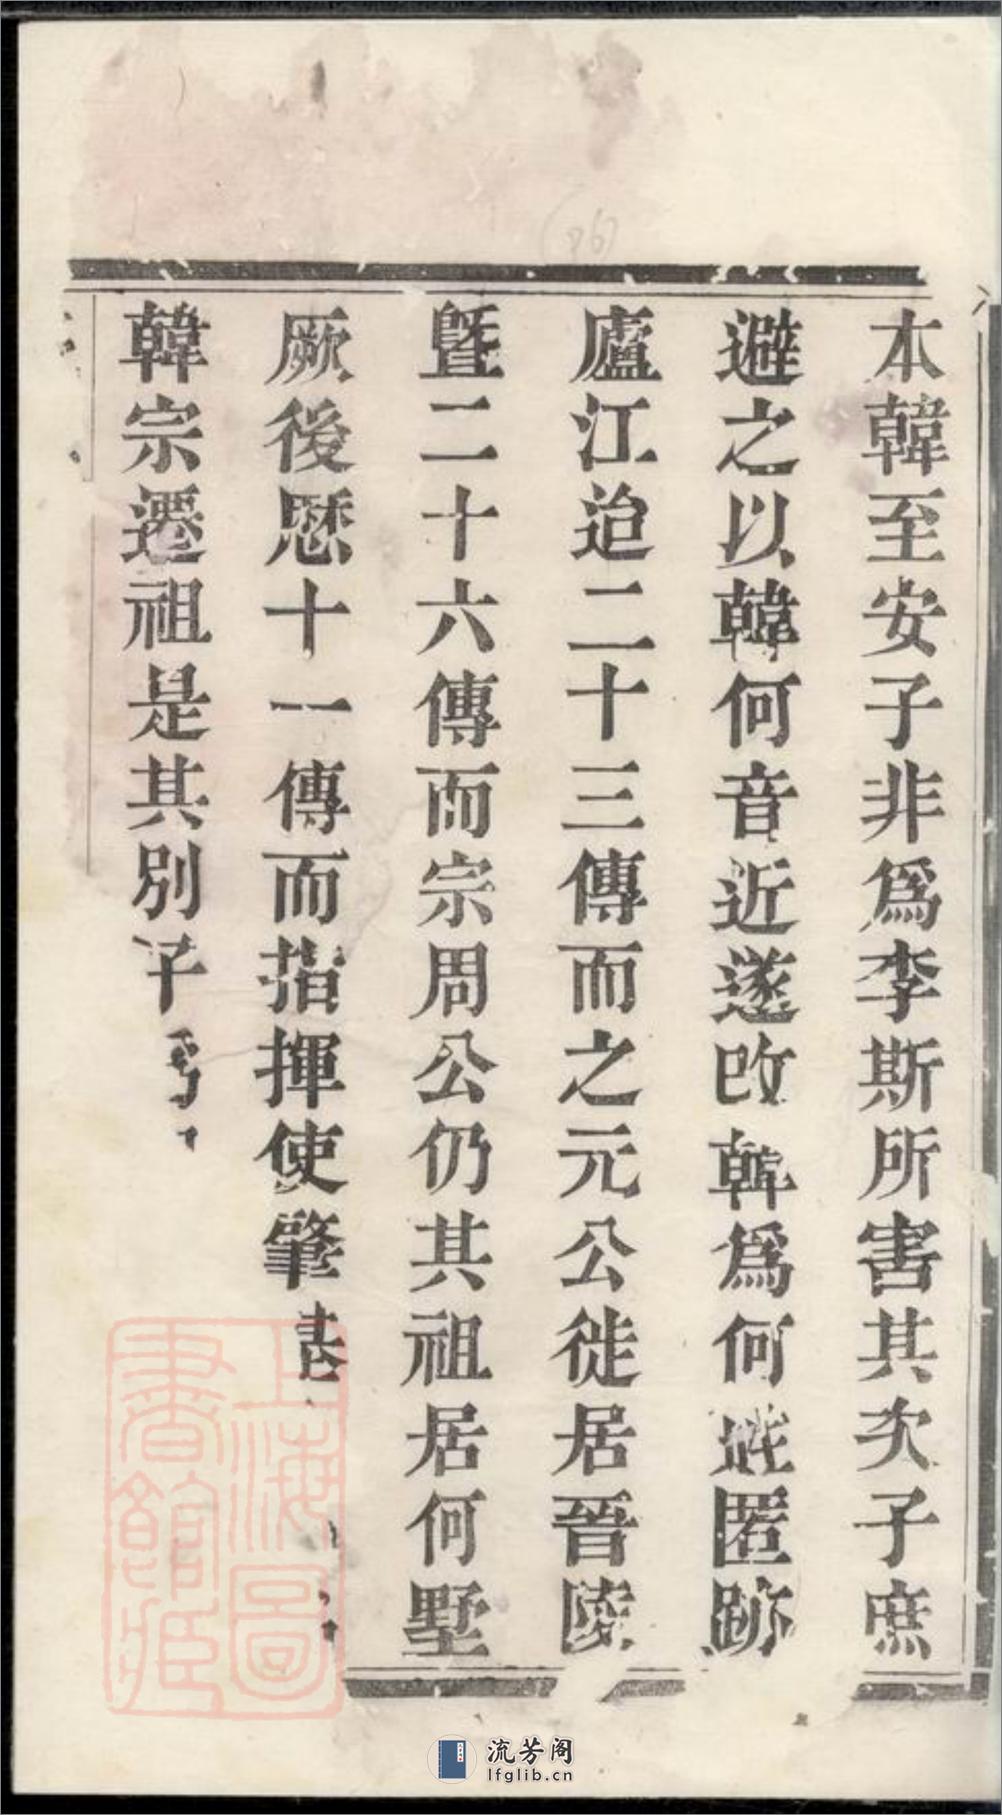 本韓至安子非爲李斯所害其次子庶
避之以韓何音近遂改韓爲何匿跡
廬江迨二十三傳而之元公徙居晉陵
曁二十六傳而宗周公仍其祖居何墅
厥後歷十一傳而指揮使肇
韓宗遷祖是其別子
上海圖書館藏
流芳阁
lfglib.cn